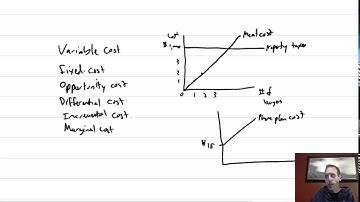 Variable cost
Fixed cost
Opportunity cost
Differential cost
Incremental cost
Marginal cost
Cost
Meal cost
Property taxes
3
2
1
0 1 2 3
# of
Phone plan cost
$15